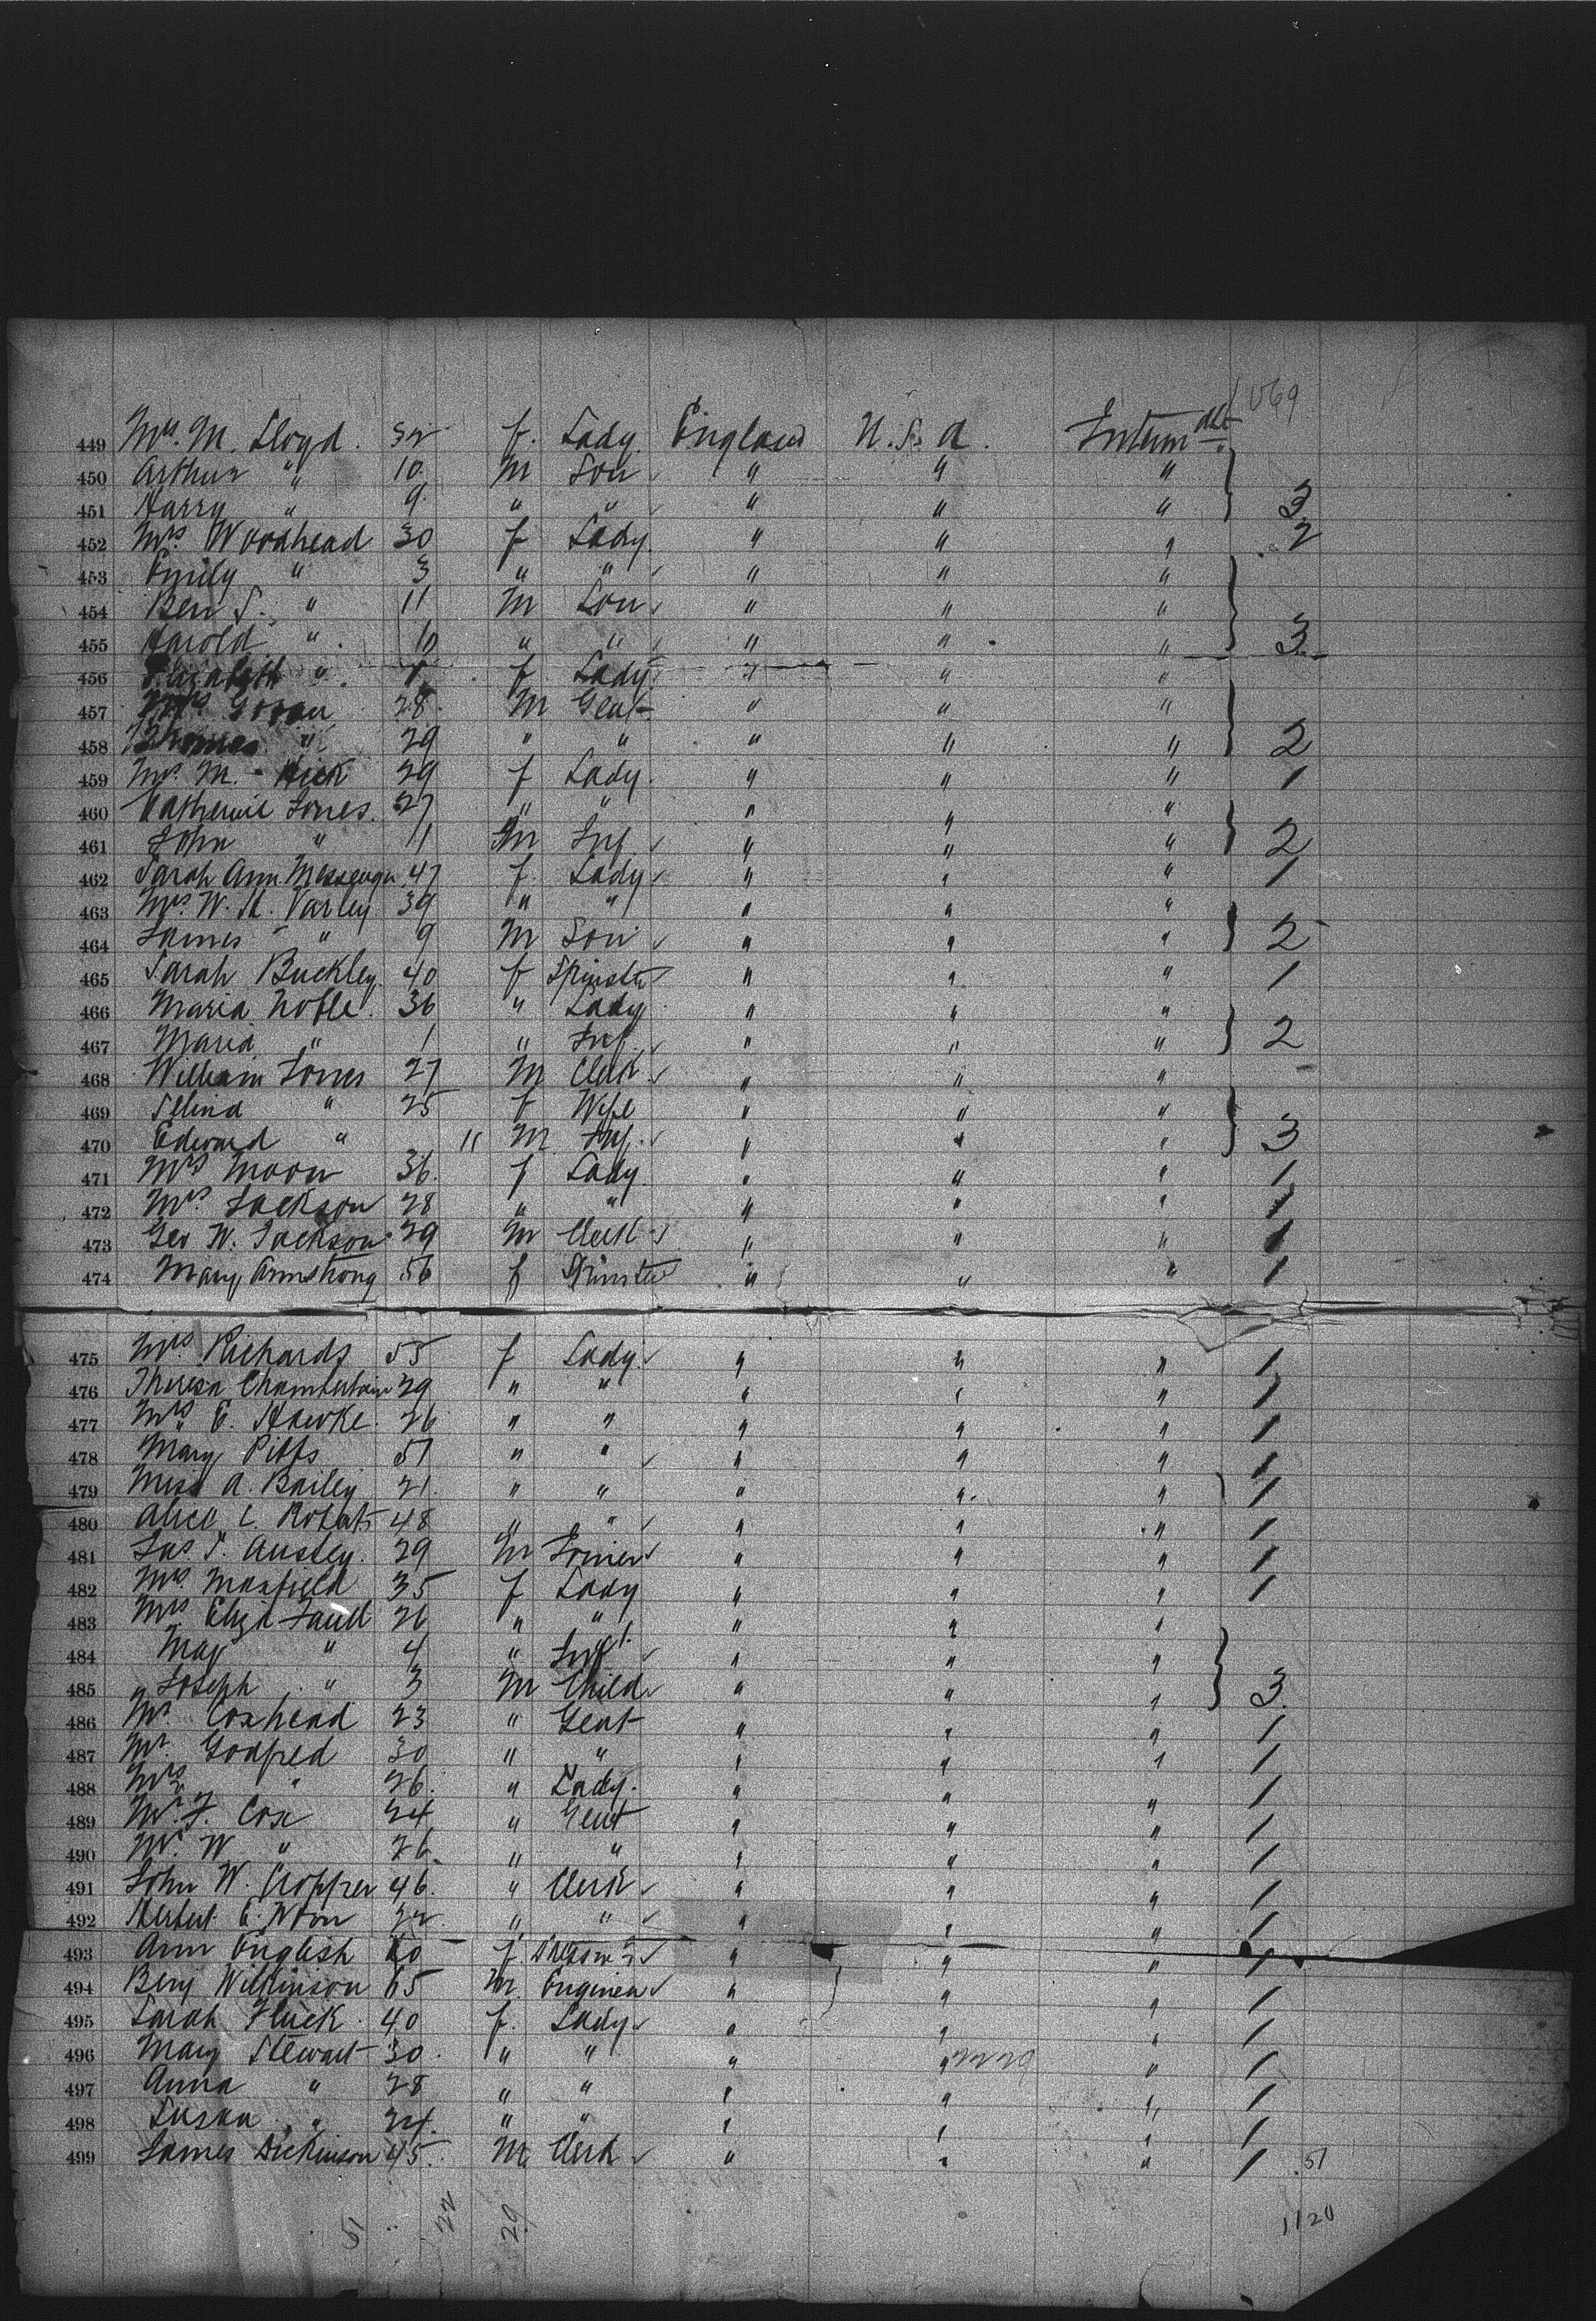 1069
449 Mrs. M. Lloyd. 32 f. Lady England U.S.A. Intermdte
450 Arthur " 10. M Son " " "
451 Harry " 9. " " " " " 3
452 Mrs. Woodhead 30 f Lady. " " " 2
453 Emily " 3 " " " " "
454 Ben S. " 11 M Son " " "
455 Harold " 10 " " " " " 3
456 Elizabeth " 1 f Lady " " "
457 Goran 28. M Gent " " "
458 Thomas " 29 " " " " " 2
459 Mrs. M. Hick 29 f Lady. " " " 1
460 Katherine Jones. 27 " " " " "
461 John " 11 M Inf. " " " 2
462 Sarah Ann Messenger 47 f. Lady " " " 1
463 Mrs. W. H. Varley 39 " " " " "
464 James " 9 M Son " " " 2
465 Sarah Buckley. 40 f Spinster " " " 1
466 Maria Noble. 36 " Lady " " "
467 Maria " 1 " Inf. " " " 2
468 William Jones 27 M Clerk " " "
469 Selina " 25 f Wife " " "
470 Edward " 11 M Inf. " " " 3
471 Mrs Moon 36. f Lady. " " " 1
472 Mrs. Jackson 28 " " " " " 1
473 Geo W. Jackson 29 M Clerk " " " 1
474 Mary Armstrong 56 f Spinster " " " 1
475 Mrs. Richards 55 f Lady. " " " 1
476 Theresa Chamberlain 29 " " " " " 1
477 Mrs E. Hawke. 26 " " " " " 1
478 Mary Pitts 51 " " " " " 1
479 Miss A. Bailey 21. " " " " " 1
480 Alice C. Roberts 48 " " " " " 1
481 Jas. T. Ansley. 29 M Joiner " " " 1
482 Mrs. Maxfield 35 f Lady " " " 1
483 Mrs Eliza 26 " " " " "
484 May " 4 " Inf. " " "
485 Joseph " 3 M Child " " " 3
486 Mr. Coxhead 23 " Gent " " " 1
487 Mr. Godfred 30 " " " " " 1
488 Mrs " 26. " Lady. " " " 1
489 Mr. F. Cox 24 " Gent " " " 1
490 Mr. W " 26 " " " " " 1
491 John W. Cropper 46. " Clerk " " " 1
492 Herbert E. Moon 22. " " " " " 1
493 Ann English f. " " " 1
494 Benj Wilkinson 65 M. Engineer " " " 1
495 Sarah Fluck. 40 f. Lady " " " 1
496 Mary Stewart 30. " " " " 2229 " 1
497 Anna " 28 " " " " " 1
498 Susan " 24. " " " " " 1
499 James Dickinson 45. M Clerk " " " 1 51
51 22 29 1120